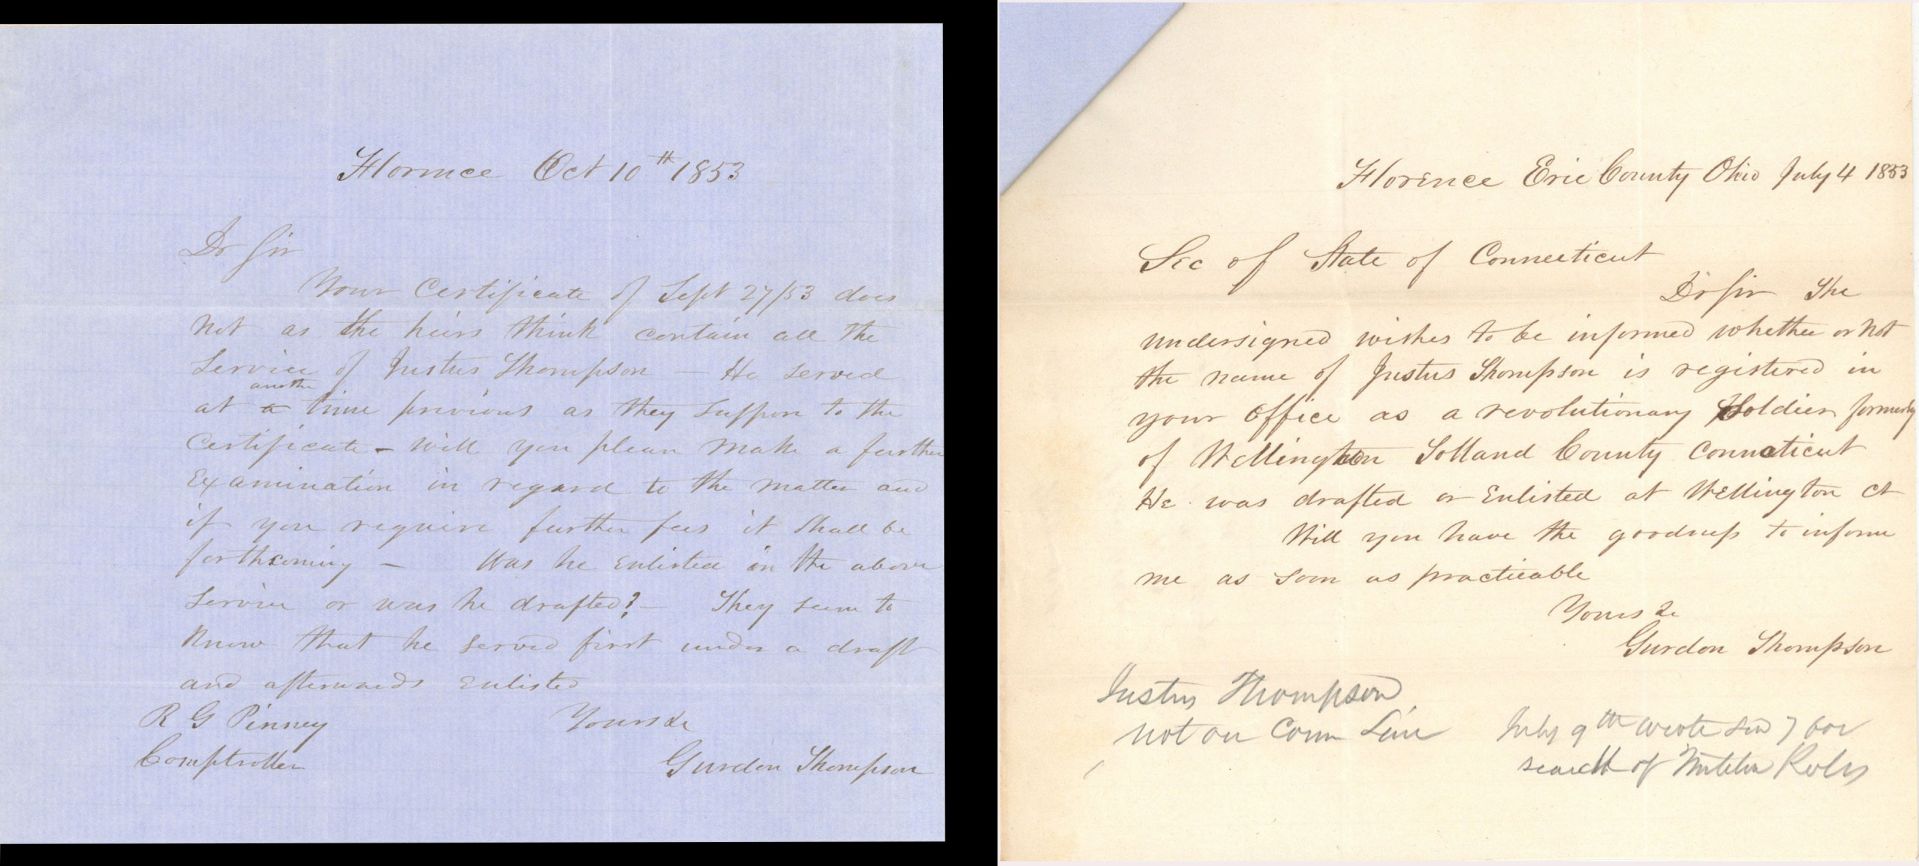 Florence Oct 10th 1853
Dr Sir
Your Certificate of Sept 27/53 does
not as the heirs think contain all the
Service of Justus Thompson — He served
another
at a time previous as they suppose to the
Certificate - Will you please make a further
Examination in regard to the matter and
if you require further fees it shall be
forthcoming — Was he Enlisted in the above
Service or was he drafted? — They seem to
know that he served first under a draft
and afterwards Enlisted
R G Pinney Yours &c
Comptroller
Gurdon Thompson
Florence Erie County Ohio July 4 1853
Sec of State of Connecticut
Dr Sir The
undersigned wishes to be informed whether or not
the name of Justus Thompson is registered in
your office as a revolutionary Soldier formerly
of Wellington Tolland County Connecticut
He was drafted or Enlisted at Wellington Ct
Will you have the goodness to inform
me as soon as practicable
Yours &c
Gurdon Thompson
Justus Thompson
not on Conn Line
July 9th wrote for
search of Rolls